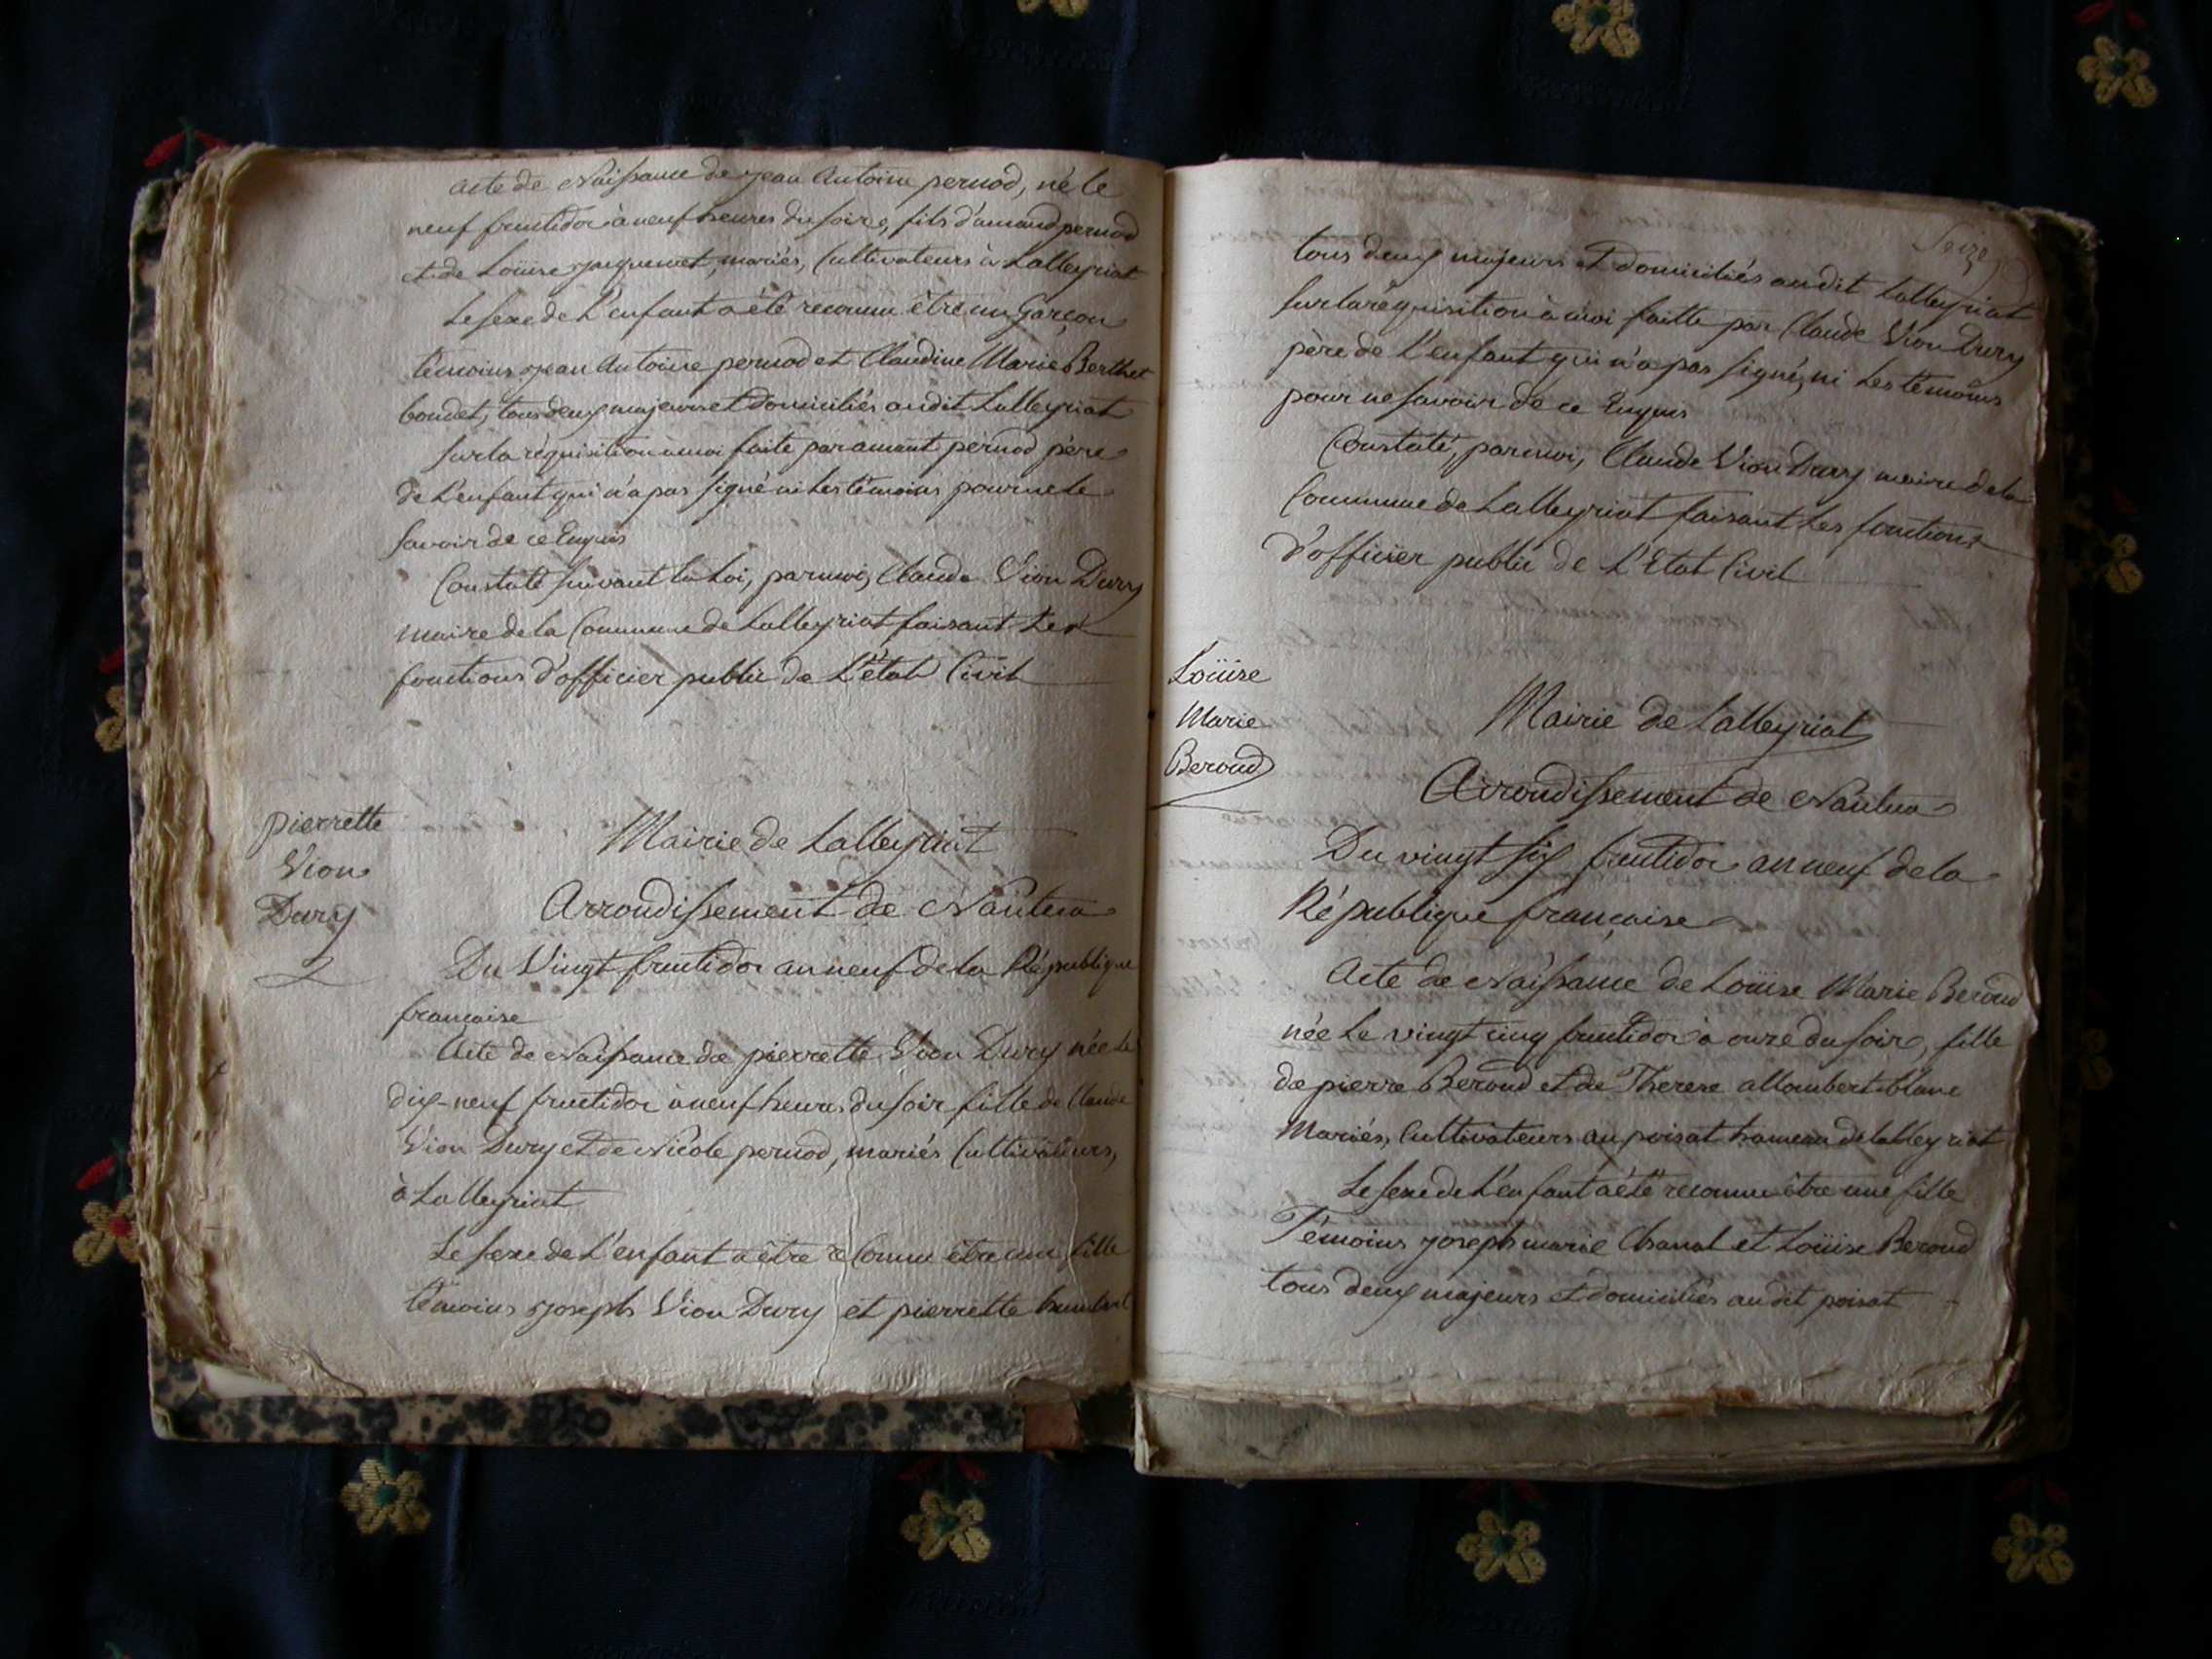 acte de Naissance de jean Antoine pernod, né le
neuf fructidor à neuf heures du soire, fils d'amand pernod
et de Loüise jacquenet, mariés, Cultivateurs à Lalleyriat
Le sexe de L'enfant a été reconnu être un Garçon
témoins jean Antoine pernod et Claudine Marie Berthet
bondet, tous deux majeurs et domiciliés audit Lalleyriat
sur la réquisition à moi faite par amant pernod père
de L'enfant qui n'a pas signé ni Les témoins pour ne le
savoir de ce Enquis
Constaté suivant la Loi, par moi, Claude Vion Dury
maire de la Commune de Lalleyriat faisant Les
fonctions d'officier public de L'état Civil
pierrette
Vion
Dury
Mairie de Lalleyriat
Arrondissement de Nantua
Du Vingt fructidor an neuf de la République
francaise
Acte de Naissance de pierrette Vion Dury née le
dix-neuf fructidor à neuf heures du soir fille de Claude
Vion Dury et de Nicole pernod, mariés Cultivateurs,
à Lalleyriat
Le sexe de L'enfant a être reConnu être une fille
témoins joseph Vion Dury et pierrette humbert
Seize
tous deux majeurs et domiciliés audit Lalleyriat
sur la réquisition à moi faitte par Claude Vion Dury
père de L'enfant qui n'a pas signé, ni Les témoins
pour ne savoir de ce Enquis
Constaté, par moi, Claude Vion Dury maire de la
Commune de Lalleyriat faisant Les fonctions
d'officier public de L'Etat Civil
Loüise
Marie
Beroud
Mairie de Lalleyriat
Arrondissement de Nantua
Du vingt six fructidor an neuf de la
République française
Acte de Naissance de Loüise Marie Beroud
née Le vingt cinq fructidor à onze du soir, fille
de pierre Beroud et de Therese allombert-blanc
Mariés, Cultivateurs au poisat hameau de lalleyriat
Le sexe de L'enfant a été reconnu être une fille
Témoins joseph marie Chanal et Loüise Beroud
tous deux majeurs et domiciliés audit poisat